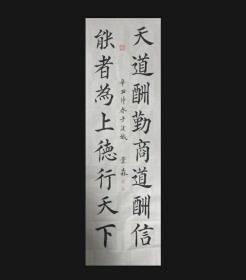 天道酬勤商道酬信
能者為上德行天下